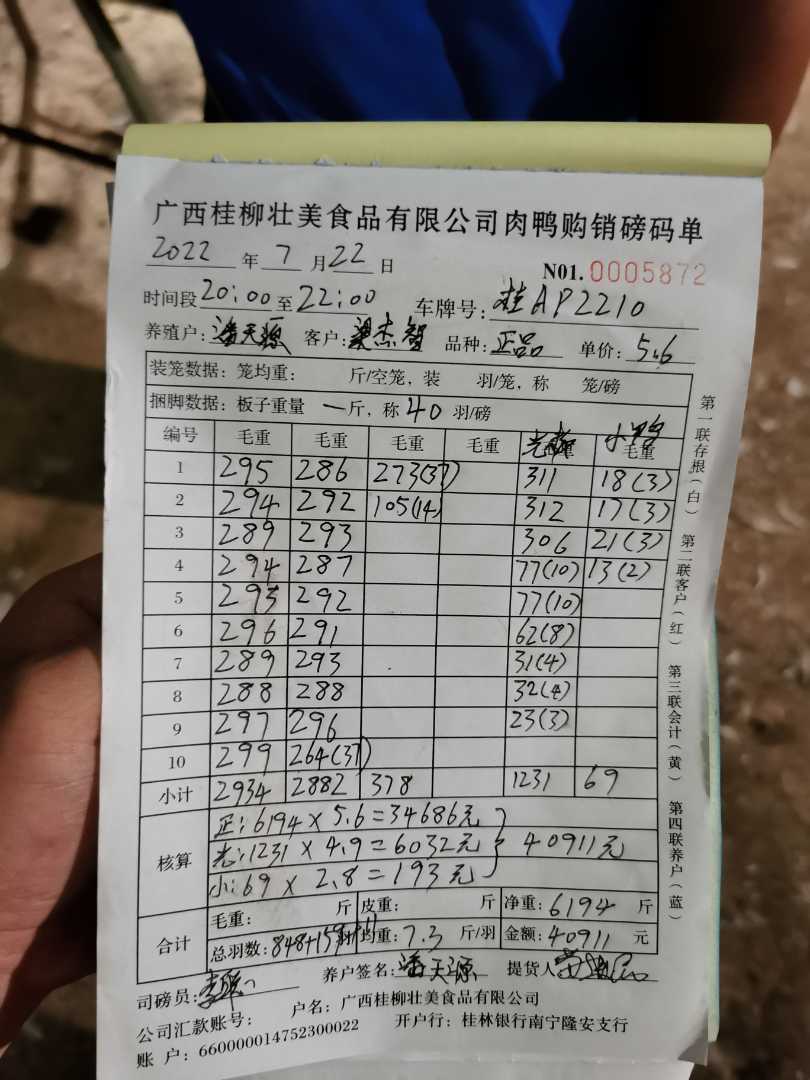 广西桂柳壮美食品有限公司肉鸭购销磅码单
2022 年 7 月 22 日 N01. 0005872
时间段 20:00 至 22:00 车牌号: 桂AP2210
养殖户: 潘天源 客户: 梁杰智 品种: 正品 单价: 5.6
装笼数据: 笼均重: 斤/空笼, 装 羽/笼, 称 笼/磅
捆脚数据: 板子重量 一 斤, 称 40 羽/磅
编号 毛重 毛重 毛重 毛重 毛重
1 295 286 273(37) 311 18(3)
2 294 292 105(14) 312 17(3)
3 289 293 306 21(3)
4 294 287 77(10) 13(2)
5 293 292 77(10)
6 296 291 62(8)
7 289 293 31(4)
8 288 288 32(4)
9 297 296 23(3)
10 299 264(37)
小计 2934 2882 378 1231 69
核算
正: 6194 × 5.6 = 34686元
光: 1231 × 4.9 = 6032元
小: 69 × 2.8 = 193元
40911元
合计
毛重: 斤 皮重: 斤 净重: 6194 斤
总羽数: 848+159+11 均重: 7.3 斤/羽 金额: 40911 元
司磅员: 养户签名: 潘天源 提货人
公司汇款账号: 户名: 广西桂柳壮美食品有限公司
账 户: 660000014752300022 开户行: 桂林银行南宁隆安支行
第一联存根(白) 第二联客户(红) 第三联会计(黄) 第四联养户(蓝)